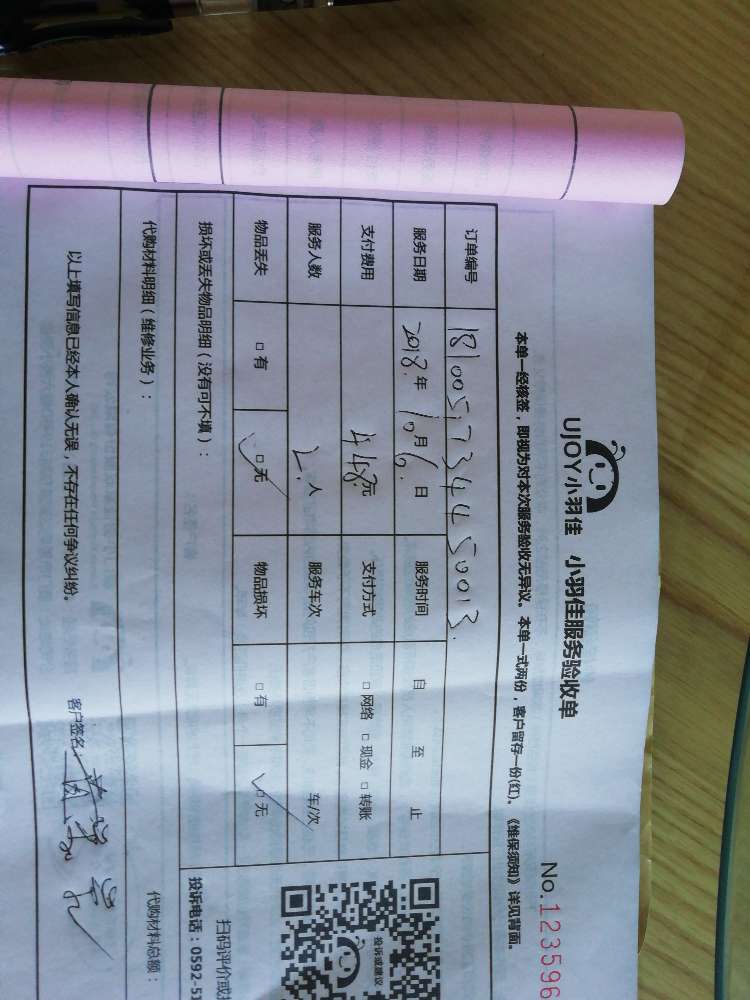 UJOY小羽佳 小羽佳服务验收单
No.123596
本单一经核签，即视为对本次服务验收无异议。本单一式两份，客户留存一份(红)。《维保须知》详见背面。
订单编号 181005734450013
服务日期 2018年10月6日 服务时间 自 至 止
支付费用 448元 支付方式 □网络 □现金 □转账
服务人数 2人 服务车次 车/次
物品丢失 □有 □无 物品损坏 □有 □无
损坏或丢失物品明细（没有可不填）：
投诉或建议
扫码评价或
投诉电话：0592-5
代购材料明细（维修业务）：
代购材料总额：
以上填写信息已经本人确认无误，不存在任何争议纠纷。
客户签名：